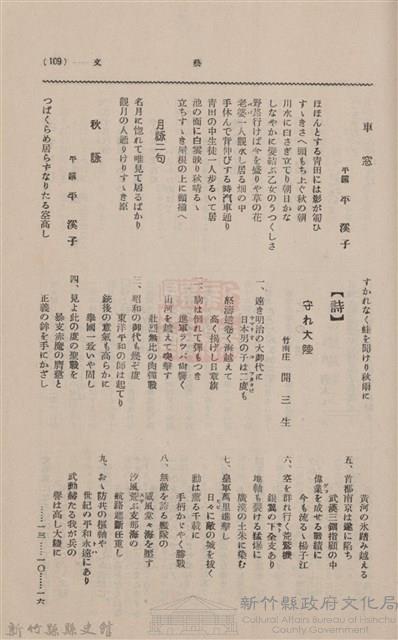 (109) 文藝
車窓
平鎭 平溪子
ほほんとする青田には影が匐ひ
すゝきさへ頭もち上ぐ秋の朝
川水に白さぎ立てり朝日かな
しなやかに髮結ぶ乙女のうつくしさ
野路行けば今を盛りや草の花
老婆一人觀水し居る畑の中
手休んで背伸びする時汽車通り
青田の中生徒一人歩るいて居
池の面に白雲映り秋晴るゝ
立ちすゝき屋根の上に頭揃へ
月詠二句
名月に惚れて唯見て居るばかり
觀月の人通りけりすゝき原
秋詠
平鎭 平溪子
つばくらめ居らずなりたる空高し
すかれなく蛙を聞けり秋雨に
【詩】
守れ大陸
竹南庄 開三生
一、遠き明治の大御代に
日本男の子は二度も
怒濤逆卷く海越えて
高く揚げし日章旗
二、駒は倒れて彈もつき
進軍ラッパ尚響く
山河を越えて突擊す
壯烈無比の肉彈戰
三、昭和の御代も幾ぞ度
東洋平和の師は起てり
銃後の意氣も高らかに
擧國一致いや固し
四、見よ此の度の聖戰を
暴支赤魔の膺懲と
正義の鉾を手にかざし
黃河の氷踏み越える
五、首都南京は遂に陷ち
武漢三鎭指顧の中
偉業を成せる戰績に
今も流るゝ楊子江
六、空を群れ行く荒鷲機
銀翼の下全支あり
地軸も裂ける猛爆に
廣漠の土朱に染む
七、皇軍萬里進擊し
日々に敵の城を拔く
勳は薰る千載に
手柄かゞやく勝戰
八、無敵を誇る艦隊の
威風堂々海を壓す
汐風荒ぶ支那海の
航路遮斷任重し
九、おゝ防共の樞軸や
世紀の平和永遠にあり
武勳赫たる我が兵の
譽は高し大陸に
……一三、一〇、一六
新竹縣縣史館
新竹縣政府文化局
Cultural Affairs Bureau of Hsinchu County Government